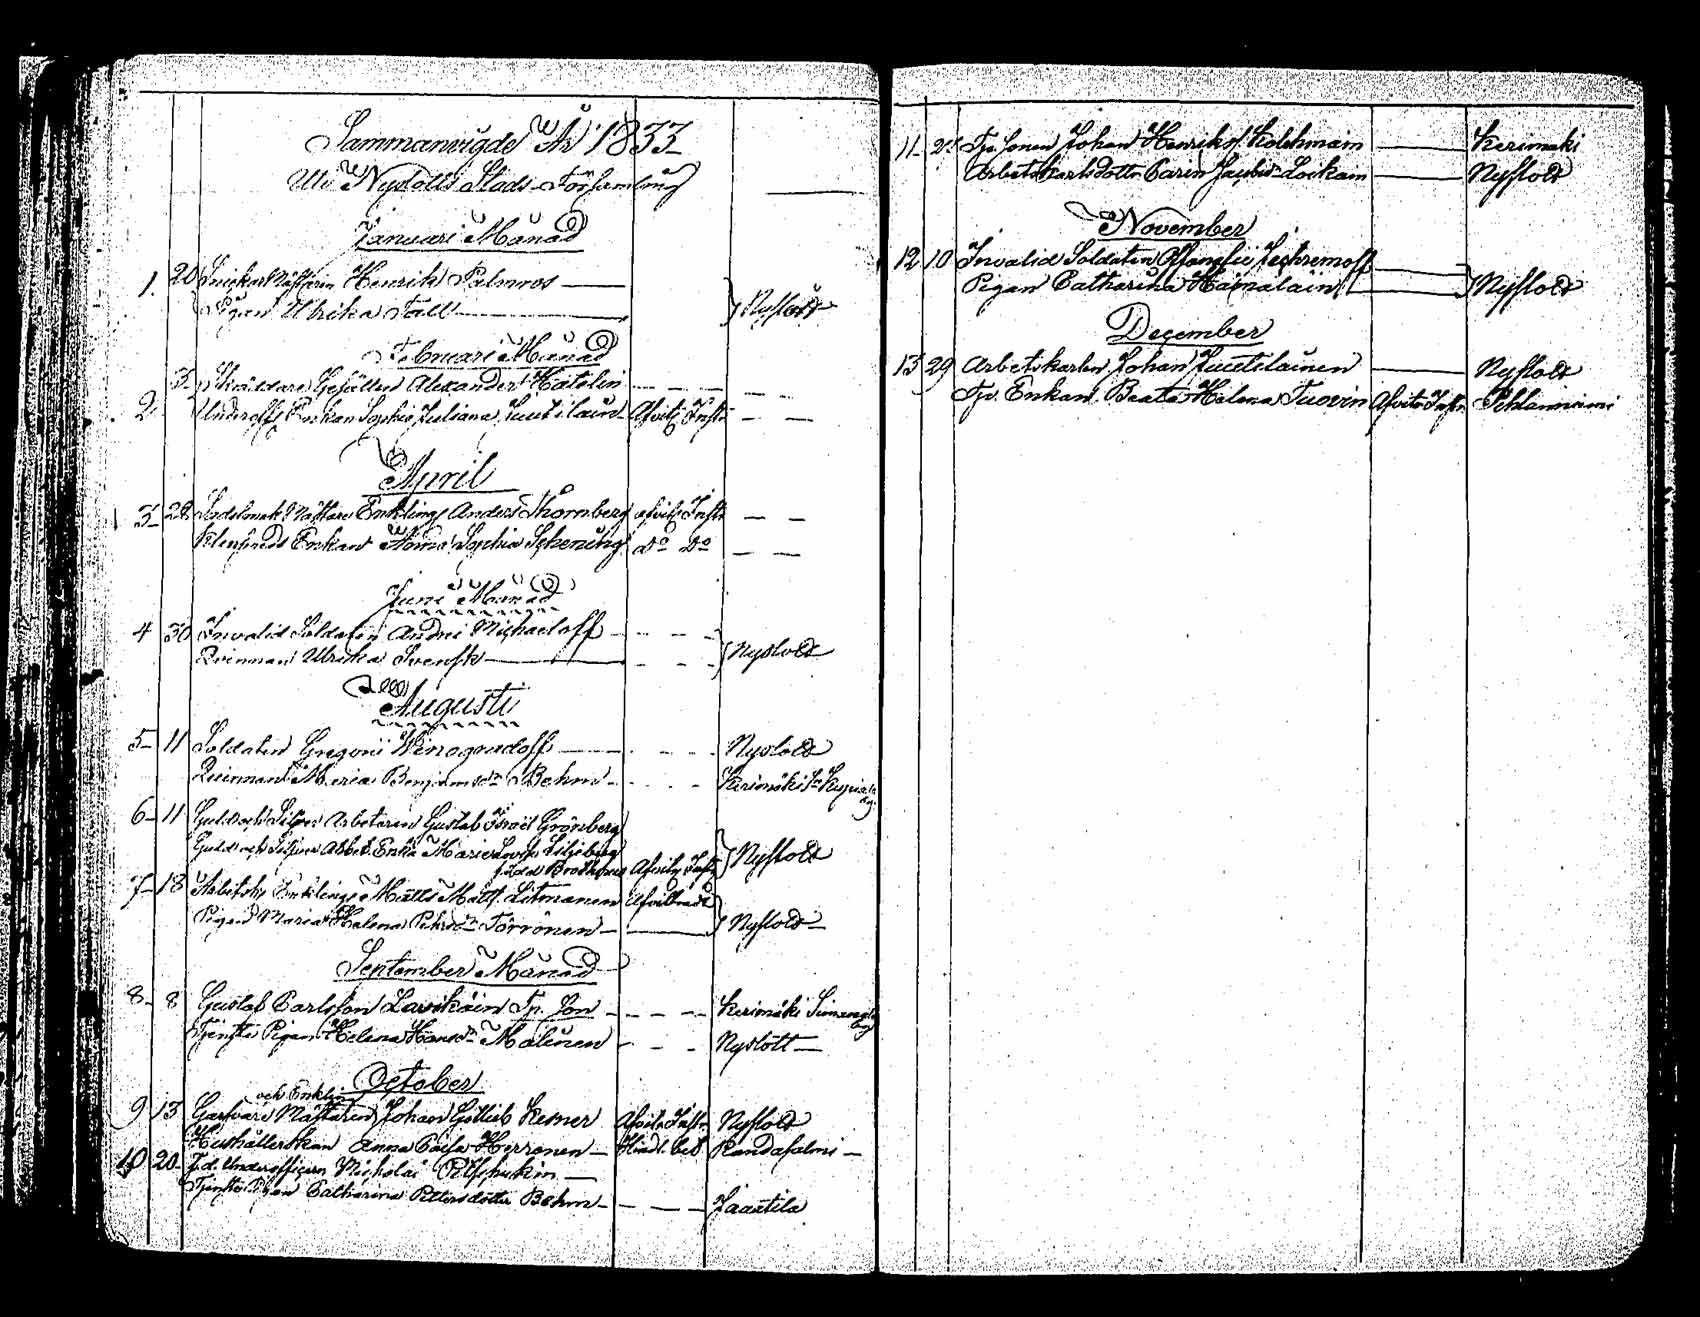 Sammanvigde År 1833
Uti Nyslotts Stads Församling
Januari Månad
1. 20 Snickar Mästaren Henrik Palmros
Pigan Ulrika Fall Nyslott
Februari Månad
3 Skräddare Gesällen Alexander Hatelin
2 Underoff. Enkan Sophia Juliana Afvitr. Instr.
April
3 28 Sadelmak. Mästare Enkling Anders Thornberg afvitr. Instr.
Enkan Anna Sophia Do Do
Juni Månad
4 30 Invalid Soldaten Andrei Michaeloff
Qvinnan Ulrika Svensk Nyslott
Augusti
5 11 Soldaten Gregorii Winogradoff Nyslott
Qvinnan Maria Benjamsdr Behm Kerimäki
6 11 Guld och Silfver Arbetaren Gustaf Israel Grönberg
Guld och Silfver Arbet. Enka Maria Lovisa Liljeberg Nyslott
född Afvitr. Instr.
7 18 Arbetsk. Enkling Matts Matts. Litmanen Afvittrad
Pigan Maria Helena Petersdr Törrönen Nyslott
September Månad
8 8 Gustaf Carlsson Lavikain Tp. Son Kerimäki
Tjenste Pigan Helena Hansdr Malinen Nyslott
October
och Enkling
9 13 Garfvare Mästaren Johan Gottlieb Afvitr. Instr. Nyslott
Hushållerskan Anna Caisa Herranen Randasalmi
10 20 F.d. Underofficeren Nicholai
Tjenste Pigan Catharina Pettersdotter Behm Jaaatila
11 Tp. Sonen Johan Henriks. Kolehmain Kerimäki
Arbetskarlsdottr Carin Nyslott
November
12 10 Invalid Soldaten
Pigan Catharina Hämäläin Nyslott
December
13 29 Arbetskarlen Johan Luutilainen Nyslott
Tp. Enkan Beata Helena Tuovin Afvitr. Instr. Pihlanniemi